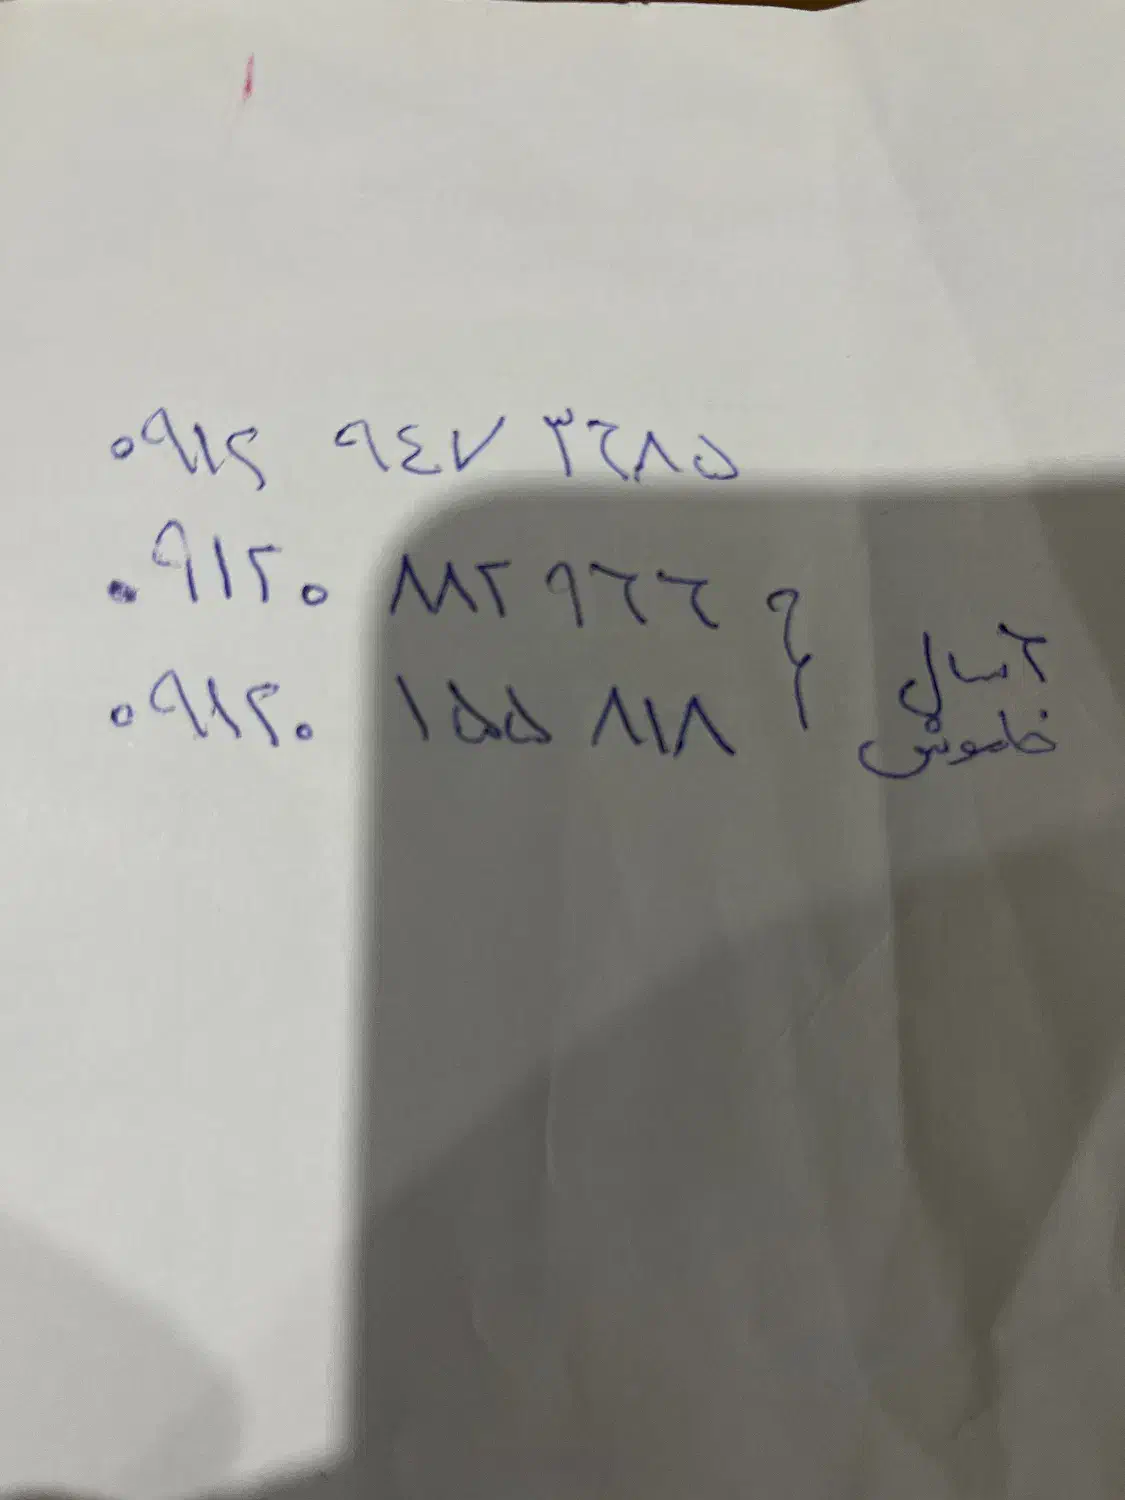 ۰۹۱۲ ۹۴۷ ۳۶۸۵
۰۹۱۲۰ ۸۸۲ ۹۶۶
۰۹۱۲۰ ۱۵۵ ۸۱۸
۶ سال
خاموش